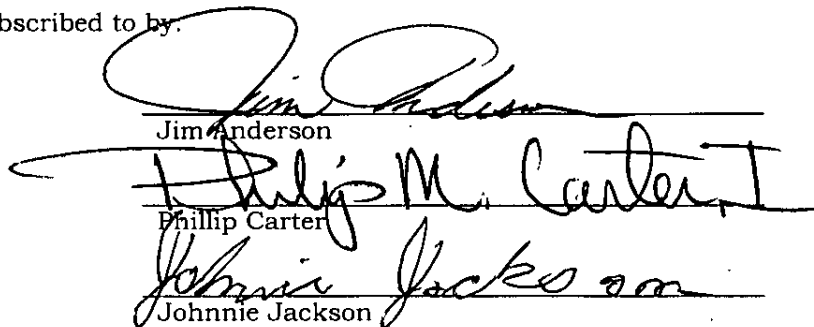 bscribed to by:
Jim Anderson
Jim Anderson
Philip M. Carter, I
Phillip Carter
Johnnie Jackson
Johnnie Jackson